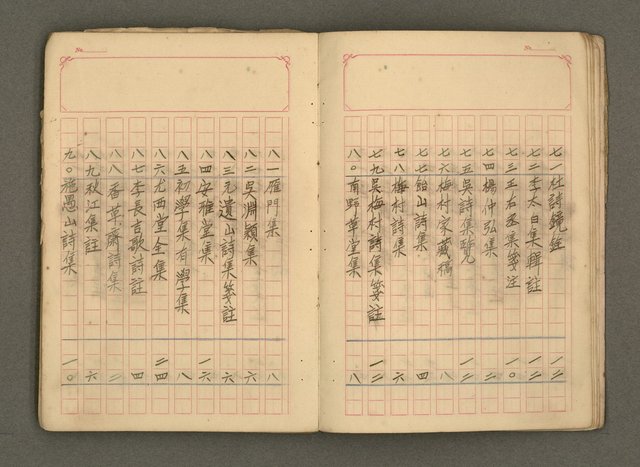 No.
七一杜詩鏡銓 一二
七二李太白集輯註 一二
七三王右丞集箋注 一〇
七四楊仲弘集 二
七五吳詩集覽 一二
七六梅村家藏稿 八
七七飴山詩集 四
七八梅村詩集 六
七九吳梅村詩集箋註 一二
八〇南野草堂集 八
No.
八一雁門集 八
八二吳淵穎集 六
八三元遺山詩集箋註 六
八四安雅堂集 一六
八五初學集有學集 八
八六尤西堂全集 二四
八七李長吉歌詩註 四
八八香草齋詩集 二
八九秋江集註 六
九〇施愚山詩集 一〇